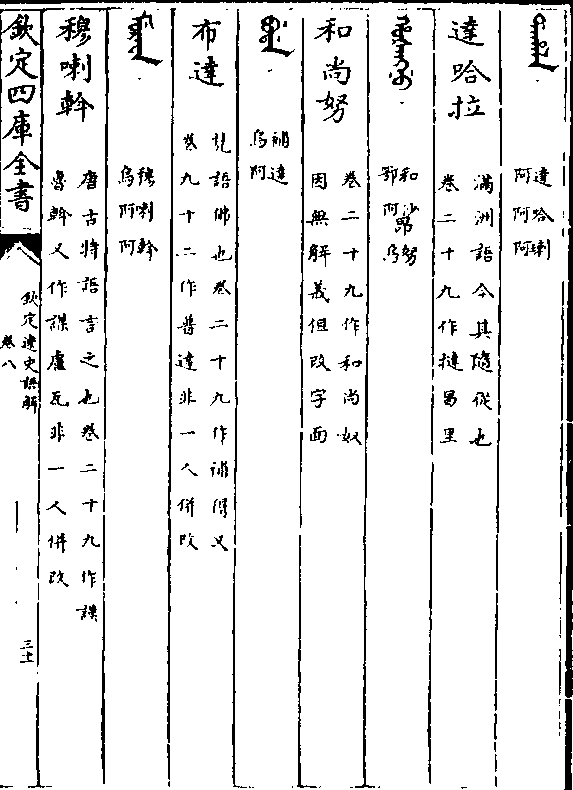 達哈喇
阿阿阿
達哈拉
滿洲語令其隨從也
卷二十九作撻曷里
和沙昂努
鄂阿烏
和尚努
卷二十九作和尚奴
因無解義但改字面
補達
烏阿
布達
梵語佛也卷二十九作補得又
卷九十二作普達非一人併改
穆喇斡
烏阿阿
穆喇斡
唐古特語言之也卷二十九作謨
魯斡又作謨盧瓦非一人併改
欽定四庫全書
欽定遼史語解
卷八